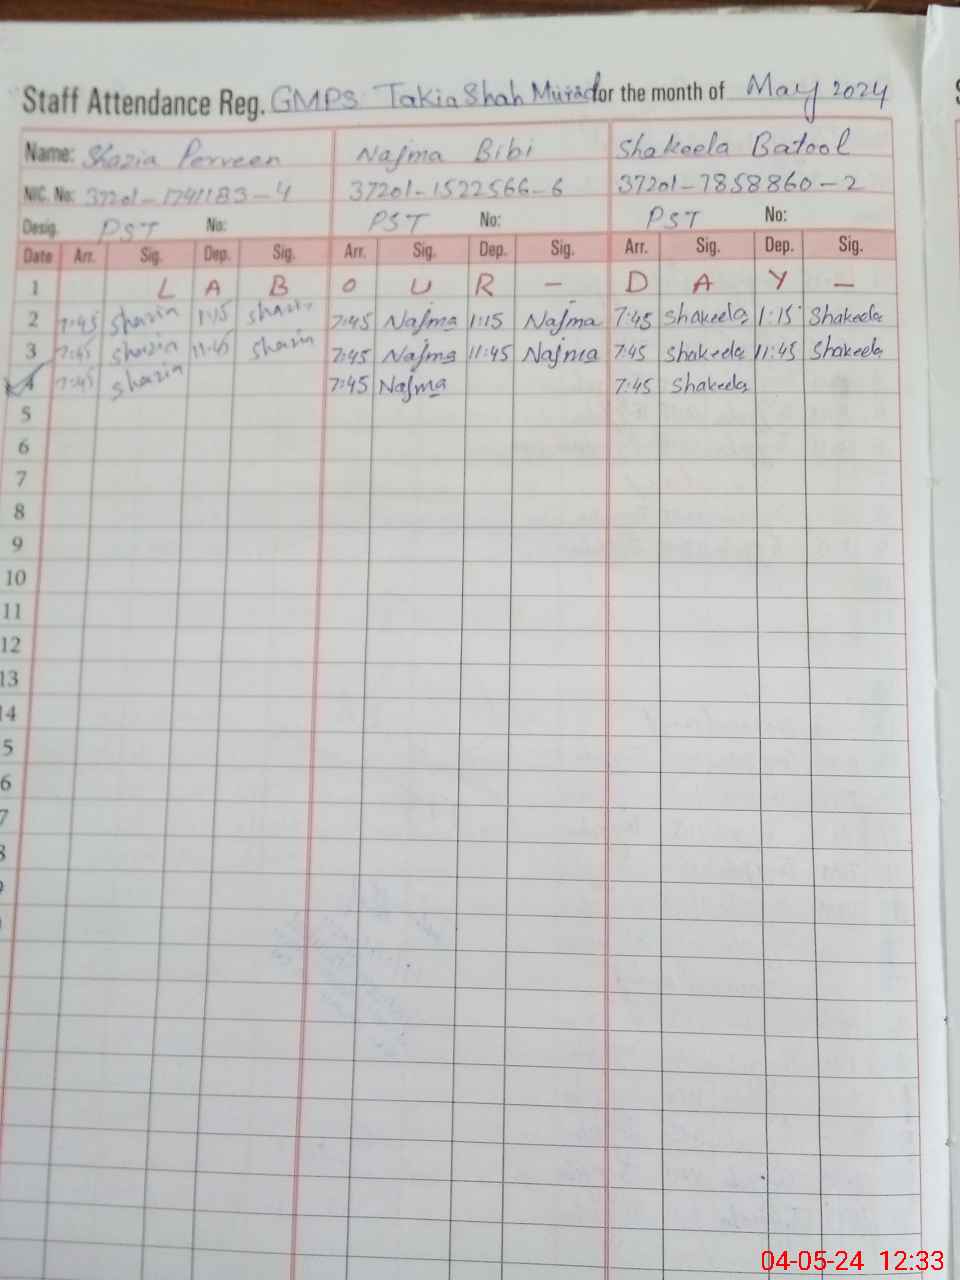 Staff Attendance Reg. GMPS Takia Shah Murad for the month of May 2024
Name: Shazia Perveen Najma Bibi Shakeela Batool
NIC. No: 37201-1741183-4 37201-1522566-6 37201-7858860-2
Desig. PST No: PST No: PST No:
Date Arr. Sig. Dep. Sig. Arr. Sig. Dep. Sig. Arr. Sig. Dep. Sig.
1 L A B O U R - D A Y -
2 7:45 Shazia 1:15 Shazia 7:45 Najma 1:15 Najma 7:45 Shakeela 1:15 Shakeela
3 7:45 Shazia 11:45 Shazia 7:45 Najma 11:45 Najma 7:45 Shakeela 11:45 Shakeela
4 7:45 Shazia 7:45 Najma 7:45 Shakeela
5
6
7
8
9
10
11
12
13
14
5
6
7
8
04-05-24 12:33